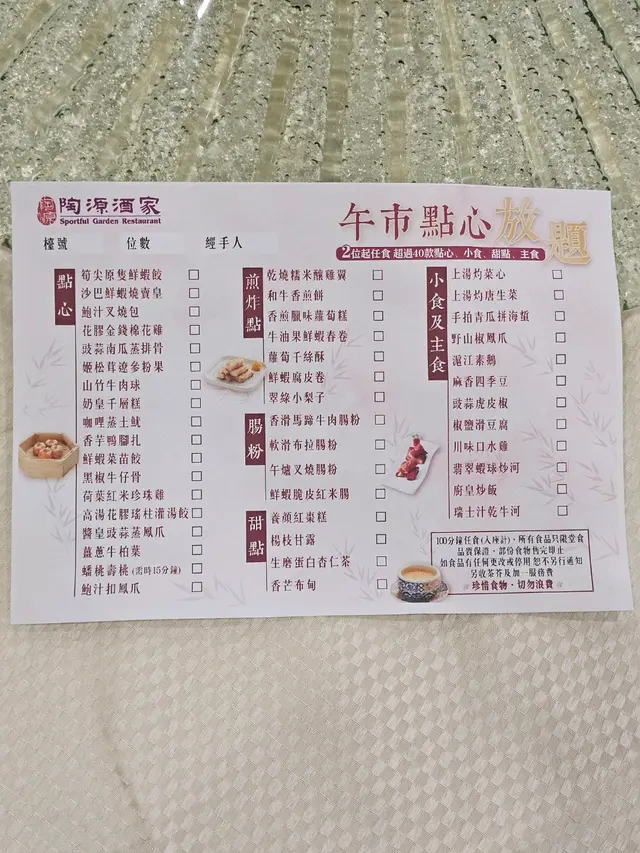 陶源酒家
Sportful Garden Restaurant
午市點心放題
2位起任食 超過40款點心、小食、甜點、主食
檯號 位數 經手人
點心
筍尖原隻鮮蝦餃
沙巴鮮蝦燒賣皇
鮑汁叉燒包
花膠金錢棉花雞
豉蒜南瓜蒸排骨
姬松茸遼參粉果
山竹牛肉球
奶皇千層糕
咖哩蒸土魷
香芋鴨腳扎
鮮蝦菜苗餃
黑椒牛仔骨
荷葉紅米珍珠雞
高湯花膠瑤柱灌湯餃
醬皇豉蒜蒸鳳爪
薑蔥牛柏葉
蟠桃壽桃 (需時15分鐘)
鮑汁扣鳳爪
煎炸點
乾燒糯米釀雞翼
和牛香煎餅
香煎臘味蘿蔔糕
牛油果鮮蝦春卷
蘿蔔千絲酥
鮮蝦腐皮卷
翠綠小梨子
腸粉
香滑馬蹄牛肉腸粉
軟滑布拉腸粉
午爐叉燒腸粉
鮮蝦脆皮紅米腸
甜點
養顏紅棗糕
楊枝甘露
生磨蛋白杏仁茶
香芒布甸
小食及主食
上湯灼菜心
上湯灼唐生菜
手拍青瓜拼海蜇
野山椒鳳爪
滬江素鵝
麻香四季豆
豉蒜虎皮椒
椒鹽滑豆腐
川味口水雞
翡翠蝦球炒河
廚皇炒飯
瑞士汁乾牛河
100分鐘任食(入座計)，所有食品只限堂食
品質保證，部份食物售完即止
如食品有任何更改或停用 恕不另行通知
另收茶芥及加一服務費
珍惜食物，切勿浪費